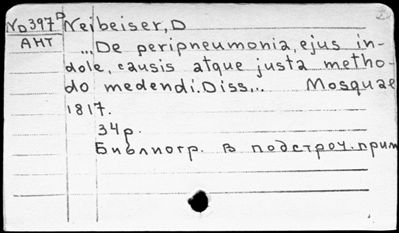 ND397D Neibeiser, D
AHT
...De peripneumonia, ejus in-
dole, causis atque justa metho-
do medendi. Diss... Mosquae
1817.
34р.
Библиогр. в подстроч. прим